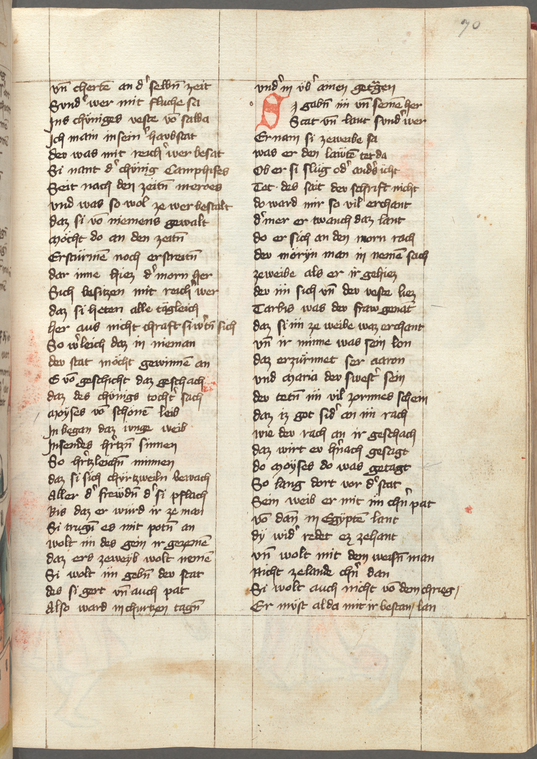 70
vn̄ cherte an dˀ selbn̄ zeit
Sundˀ wer mit fluhe sa
Ins chüniges veste vō saba
Ich main in sein haubstat
der was mit reichˀ wer besat
Si nant dˀ chünig Camphises
Seit nach den zeitn̄ meroes
vnd was so wol ze wer bestalt
daz si vō niemens gewalt
möcht do an den zeitn̄
Ersturmen noch erstreitn̄
dar inne hiez dˀ morn her
Sich besitzen mit reichˀ wer
daz si heten alle tägleich
her aus nicht chraft si wertn̄ sich
So wˀleich daz in nieman
der stat möcht gewinnen an
vō geschicht daz geschach
daz des chünigs tocht sach
moyses vō schonē leib
In began daz iunge weib
Insendes hˀtzn̄ sinnen
So hˀtzleichn̄ minnen
daz si sich chürtzweiln bewach
Aller dˀ frewdn̄ dˀ si pflach
Bis daz er wurd ir ze man
Si trugn̄ es mit potn̄ an
wolt im des gein ir gezemē
daz ers zeweyb wolt nemē
Si wolt im gebn̄ der stat
des si gert vn̄ auch pat
Also ward in churtzen tagn̄
vnd im vbˀ amen getzogen
Si gabn̄ im vn̄ seinē her
Stat vn̄ laut sundˀ wer
Er nam si zeweibe sa
was er den lauten tet da
Ob er si slug odˀ anders icht
Tet des seit der schrift nicht
do ward mir so vil erchant
dˀ mer er twanch daz lant
do er sich an den morn rach
der mörijn man in nemē sach
zeweibe als er ir gehiez
der im sich vn̄ der veste liez
Tarbis was der fraw genāt
daz si im ze weibe waz erchant
vn̄ ir minne was sein lon
daz erzürnnet ser aaron
vnd maria der swestˀ sein
der tetn̄ im vil zornnes schein
daz iz got sidˀ an im rach
wie der rach an ir geschach
daz wirt ew hˀnach gesagt
do moyses do was getagt
So lang dort vor dˀ stat
Sein weib er mit im chn̄ pat
vō dan̄ in Egypte lant
dy widˀ redet ez zehant
vn̄ wolt mit dem werfn̄ man
Nicht zelande chn̄ dan
Si wolt auch nicht vō dem chrieg
Er müst al da mit ir bestan lan